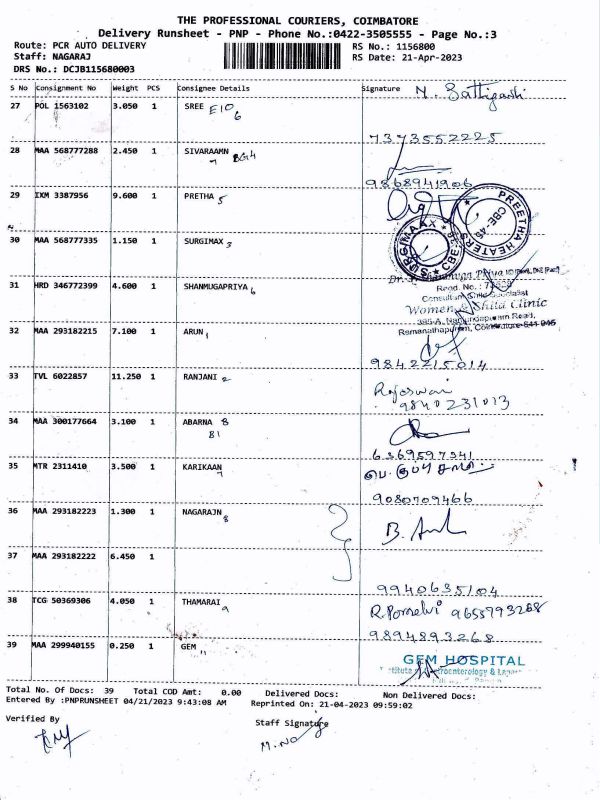 THE PROFESSIONAL COURIERS, COIMBATORE
Delivery Runsheet - PNP - Phone No.:0422-3505555 - Page No.:3
Route: PCR AUTO DELIVERY RS No.: 1156800
Staff: NAGARAJ RS Date: 21-Apr-2023
DRS No.: DCJB115680003
S No Consignment No Weight PCS Consignee Details Signature
27 POL 1563102 3.050 1 SREE E10 6
7373552225
28 MAA 568777288 2.450 1 SIVARAAMN 7 BG4
9868941906
29 IKM 3387956 9.600 1 PRETHA 5
PREETHA HEATERS CBE-45
30 MAA 568777335 1.150 1 SURGIMAX 3
SURGIMAAX CBE
31 HRD 346772399 4.600 1 SHANMUGAPRIYA 6
Consultant
Women & Child Clinic
Ramanathapuram, Coimbatore-641 045
32 MAA 293182215 7.100 1 ARUN 1
9842215014
33 TVL 6022857 11.250 1 RANJANI 2
9840231013
34 MAA 300177664 3.100 1 ABARNA 8
81
6369597341
35 MTR 2311410 3.500 1 KARIKAAN 7
9080709466
36 MAA 293182223 1.300 1 NAGARAJN 8
37 MAA 293182222 6.450
9940635104
38 TCG 50369306 4.050 1 THAMARAI 9
9655793268
9894893268
39 MAA 299940155 0.250 1 GEM 11
GEM HOSPITAL
Total No. Of Docs: 39 Total COD Amt: 0.00 Delivered Docs: Non Delivered Docs:
Entered By :PNPRUNSHEET 04/21/2023 9:43:08 AM Reprinted On: 21-04-2023 09:59:02
Verified By Staff Signature